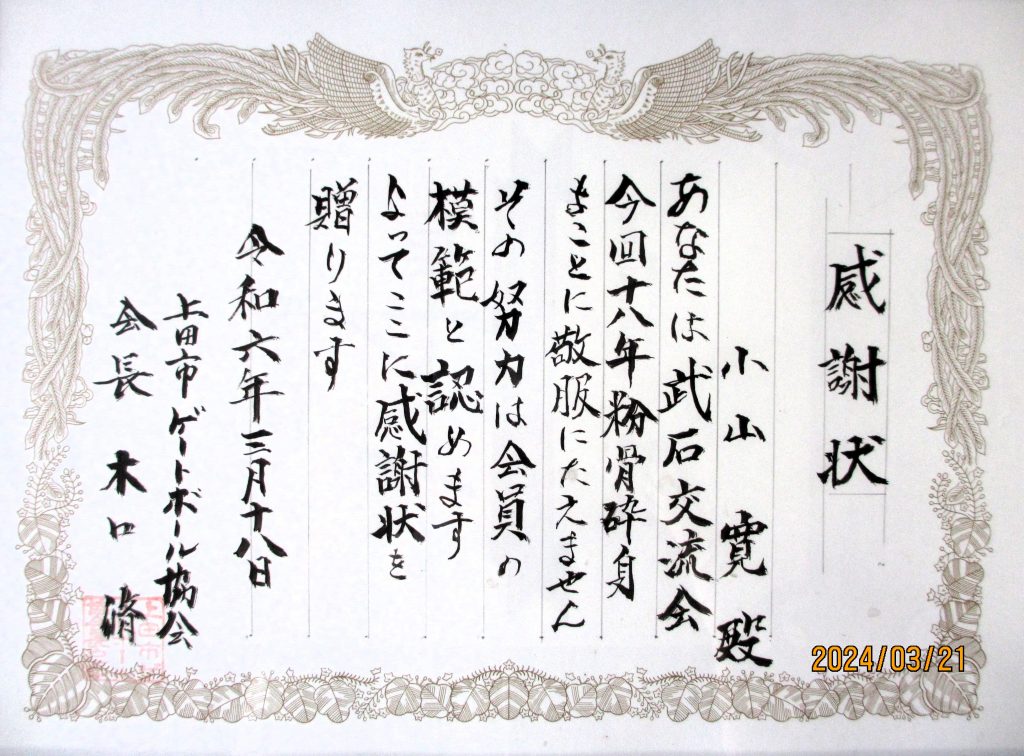 感謝状
小山 寛 殿
あなたは武石交流会
今回十八年粉骨砕身
まことに敬服にたえません
その努力は会員の
模範と認めます
よってここに感謝状を
贈ります
令和六年三月十八日
上田市ゲートボール協会
会長 木口 済
2024/03/21